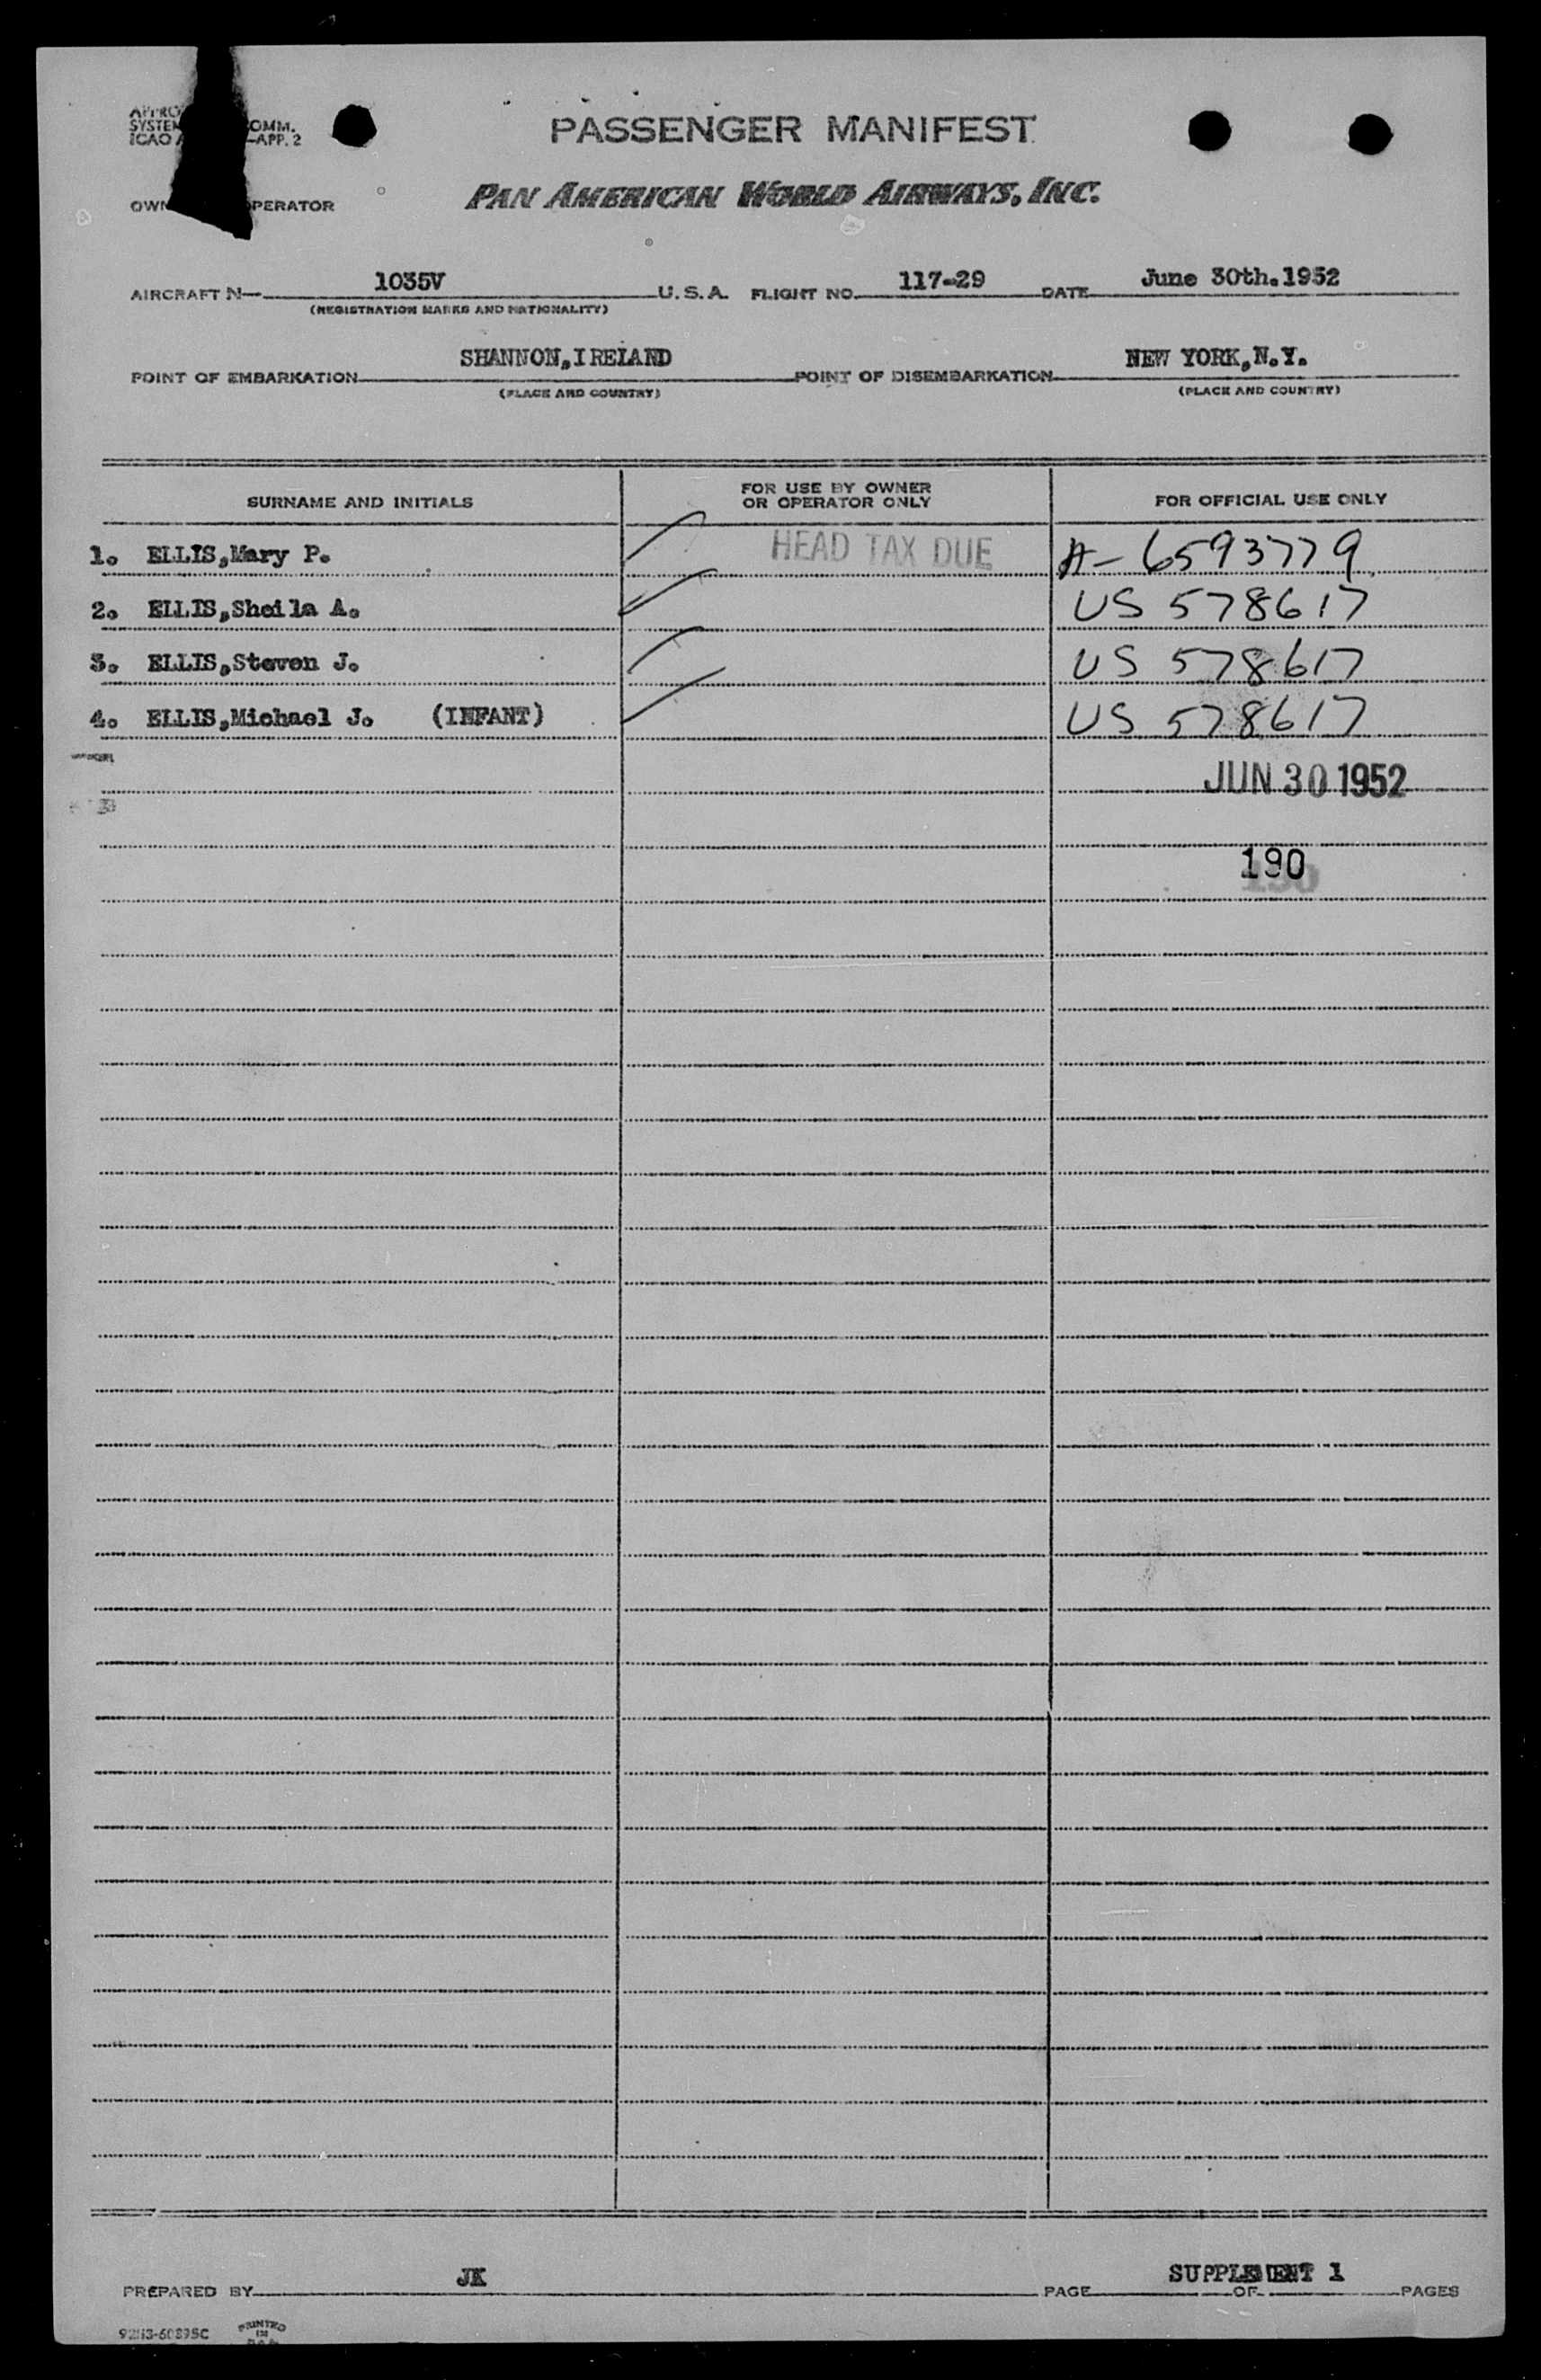 SYSTEM COMM.
ICAO -APP. 2
PASSENGER MANIFEST
OPERATOR
PAN AMERICAN WORLD AIRWAYS, INC.
AIRCRAFT N- 1035V U.S.A. FLIGHT NO. 117-29 DATE June 30th.1952
(REGISTRATION MARKS AND NATIONALITY)
POINT OF EMBARKATION SHANNON,IRELAND POINT OF DISEMBARKATION NEW YORK,N.Y.
(PLACE AND COUNTRY) (PLACE AND COUNTRY)
SURNAME AND INITIALS FOR USE BY OWNER OR OPERATOR ONLY FOR OFFICIAL USE ONLY
1. ELLIS,Mary P. HEAD TAX DUE A- 6593779
2. ELLIS,Sheila A. US 578617
3. ELLIS,Steven J. US 578617
4. ELLIS,Michael J. (INFANT) US 578617
JUN 30 1952
190
PREPARED BY JK PAGE SUPPLEMENT 1 OF PAGES
PRINTED
IN